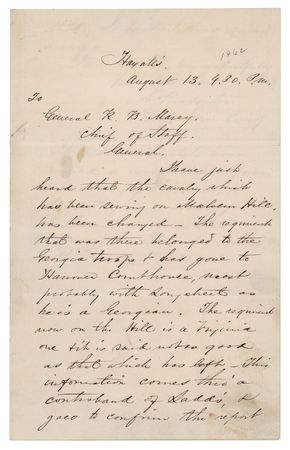 Haxall's.
1862
August 13. 9.30. P.m.
To
General R. B. Marcy.
Chief of Staff.
General.
I have just
heard that the cavalry which
has been serving on Malvern Hill,
has been changed — The regiment
that was there belonged to the
Georgia troops & has gone to
Hanover Courthouse, most
probably with Longstreet as
he is a Georgian. The regiment
now on the Hill is a Virginia
one & it is said not so good
as that which has left. — This
information comes thro' a
contraband of Ladd's, &
goes to confirm the report